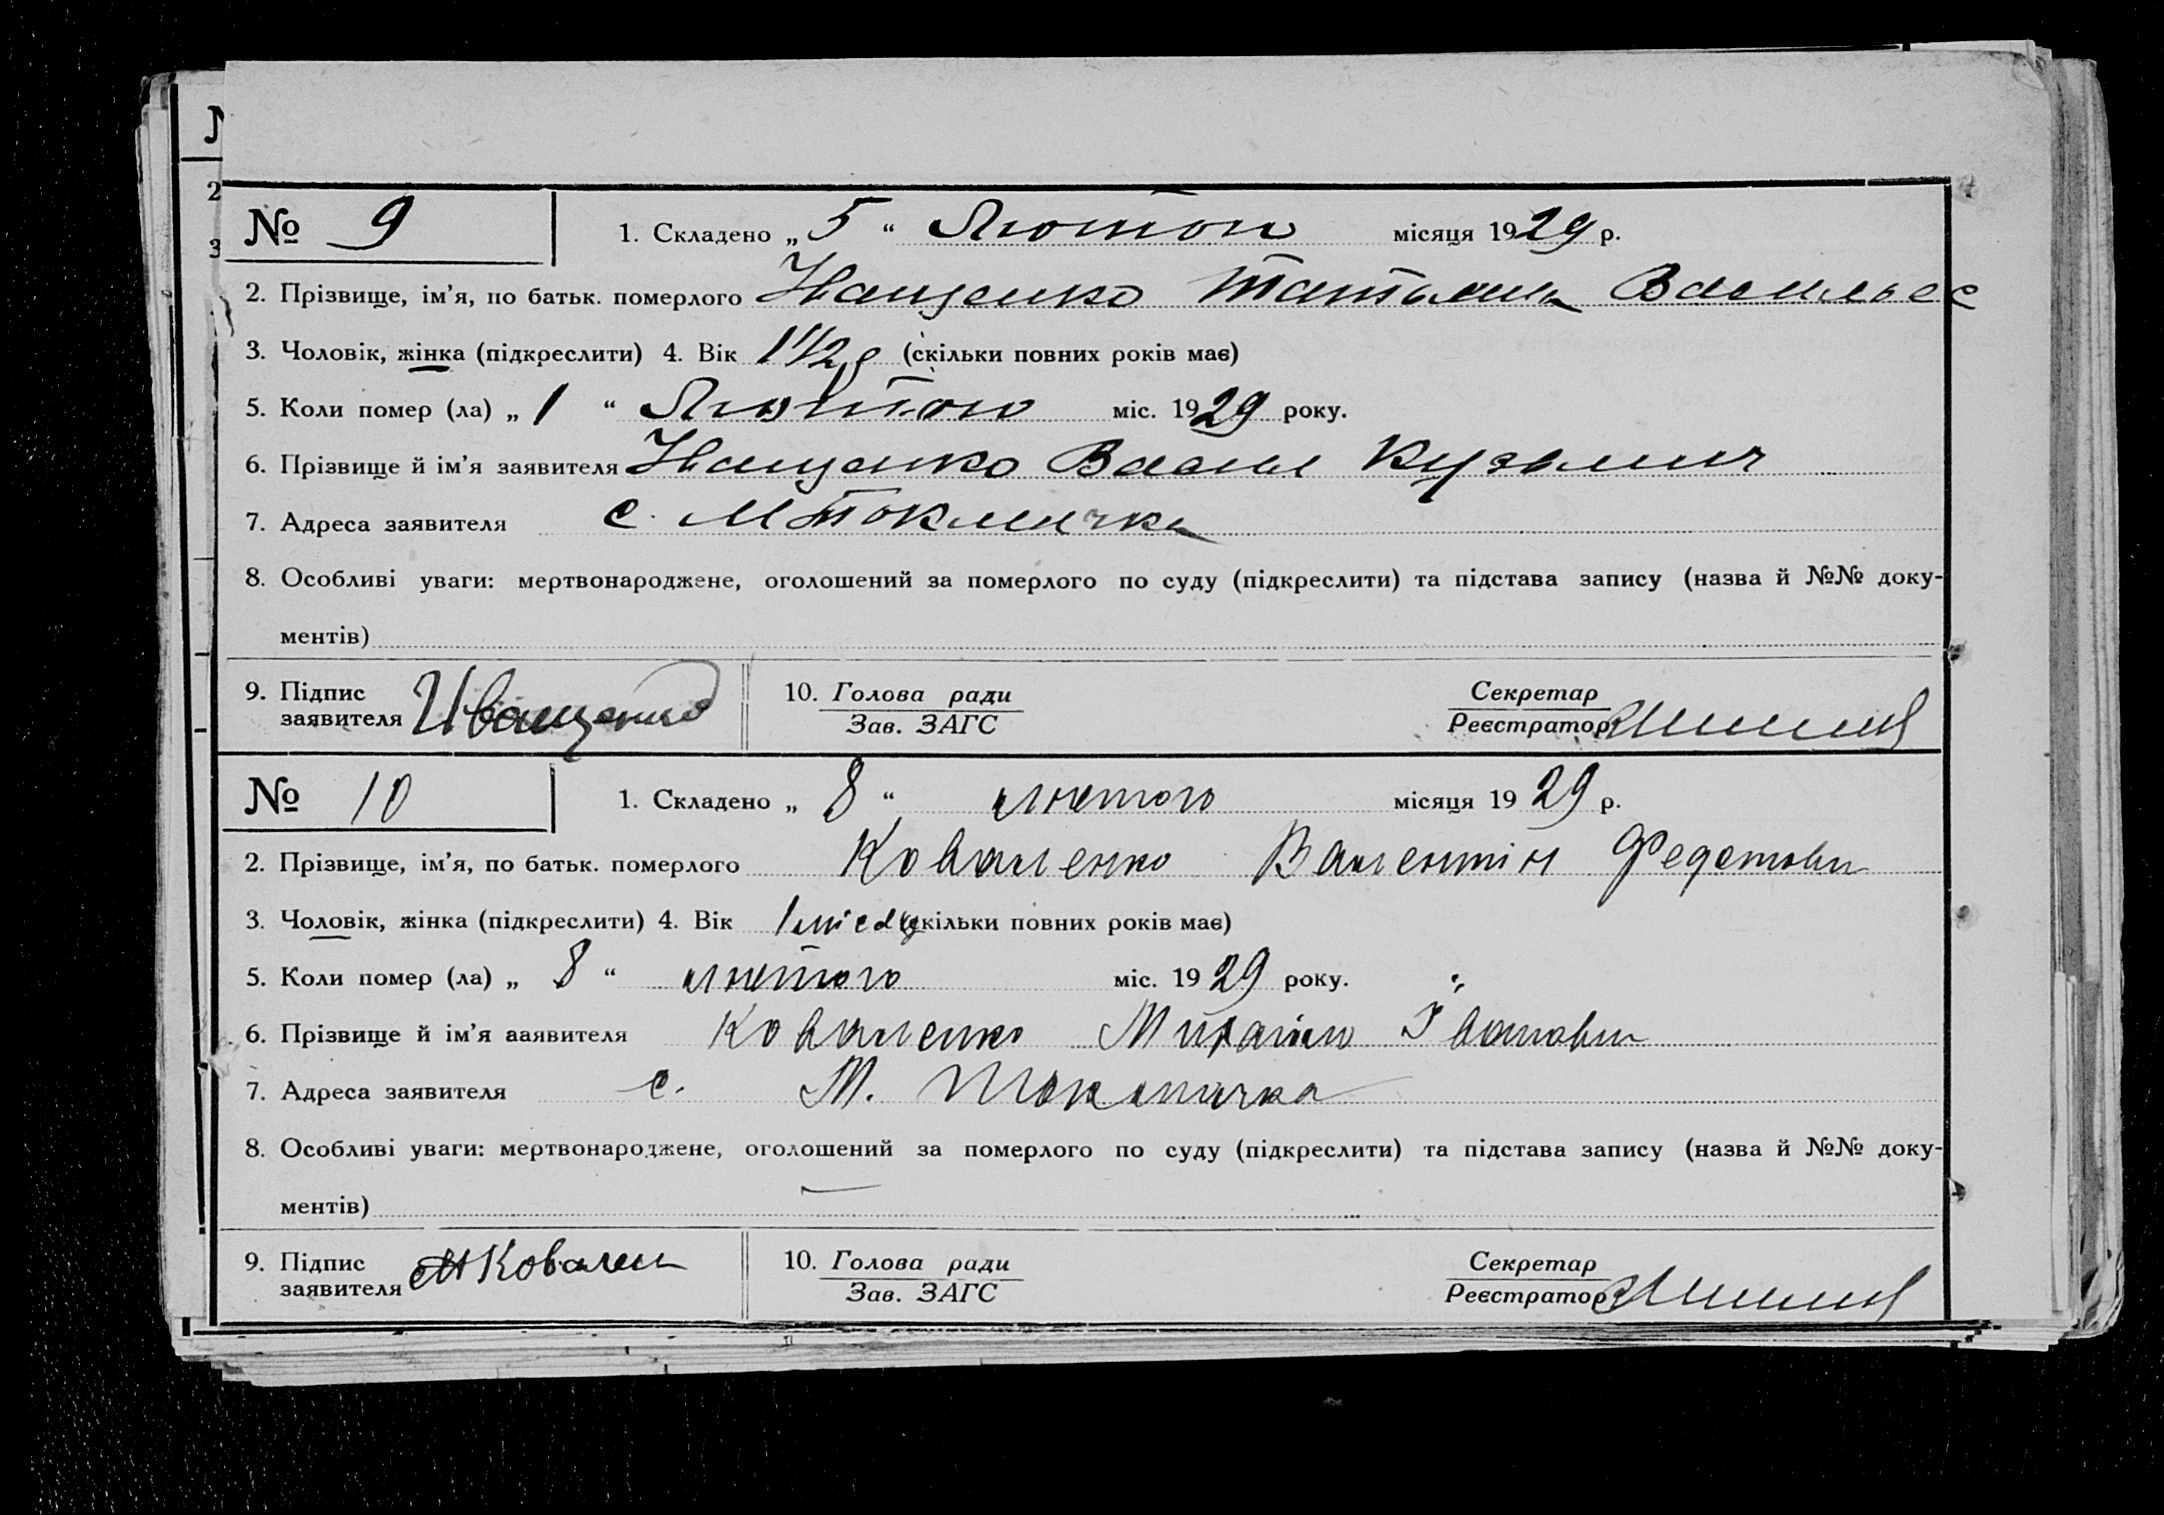 № 9 1. Складено „ 5 “ Лютого місяця 1929 р.
2. Прізвище, ім’я, по батьк. померлого Иващенко Татьяна Васильев
3. Чоловік, жінка (підкреслити) 4. Вік 1 1/2 р (скільки повних років має)
5. Коли помер (ла) „ 1 “ Лютого міс. 1929 року.
6. Прізвище й ім’я заявителя Иващенко Василь Кузьмич
7. Адреса заявителя с. М Токмачка
8. Особливі уваги: мертвонароджене, оголошений за померлого по суду (підкреслити) та підстава запису (назва й №№ доку-
ментів)
9. Підпис заявителя Иващенко 10. Голова ради Зав. ЗАГС Секретар Реєстратор
№ 10 1. Складено „ 8 “ лютого місяця 1929 р.
2. Прізвище, ім’я, по батьк. померлого Коваленко Валентін Федотови
3. Чоловік, жінка (підкреслити) 4. Вік 1 місяц (скільки повних років має)
5. Коли помер (ла) „ 8 “ лютого міс. 1929 року.
6. Прізвище й ім’я ааявителя Коваленко Михайло Іванович
7. Адреса заявителя с. М. Токмачка
8. Особливі уваги: мертвонароджене, оголошений за померлого по суду (підкреслити) та підстава запису (назва й №№ доку-
ментів)
9. Підпис заявителя М Ковален 10. Голова ради Зав. ЗАГС Секретар Реєстратор